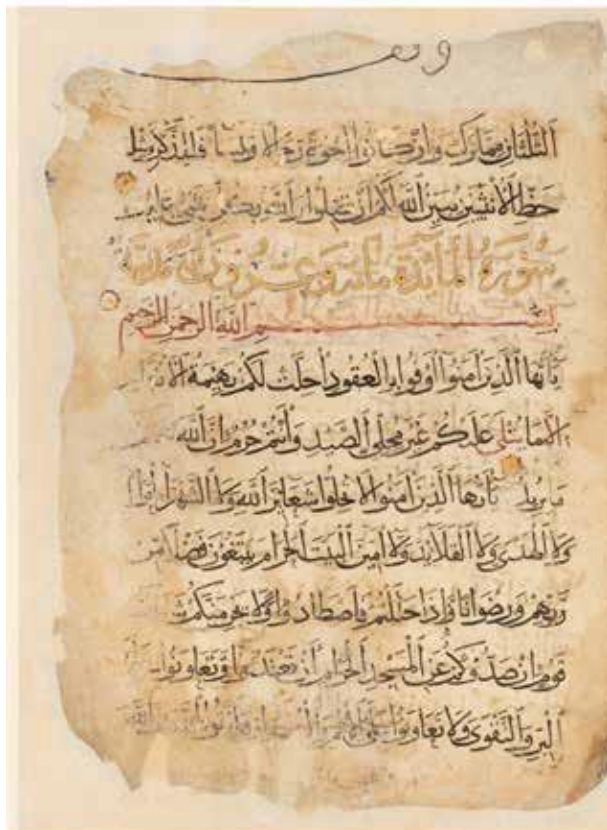 وقف
الثلثان مما ترك وان كانوا اخوة رجالا ونساء فللذكر مثل
حظ الانثيين يبين الله لكم ان تضلوا والله بكل شيء عليم
سورة المائدة مائة وعشرون
بسم الله الرحمن الرحيم
يأيها الذين امنوا اوفوا بالعقود احلت لكم بهيمة الانعام
الا ما يتلى عليكم غير محلي الصيد وانتم حرم ان الله
ما يريد يأيها الذين امنوا لا تحلوا شعائر الله ولا الشهر الحرام
ولا الهدي ولا القلايد ولا امين البيت الحرام يبتغون فضلا من
ربهم ورضوانا واذا حللتم فاصطادوا ولا يجرمنكم
قوم ان صدوكم عن المسجد الحرام ان تعتدوا وتعاونوا
البر والتقوى ولا تعاونوا على الاثم والعدوان واتقوا الله